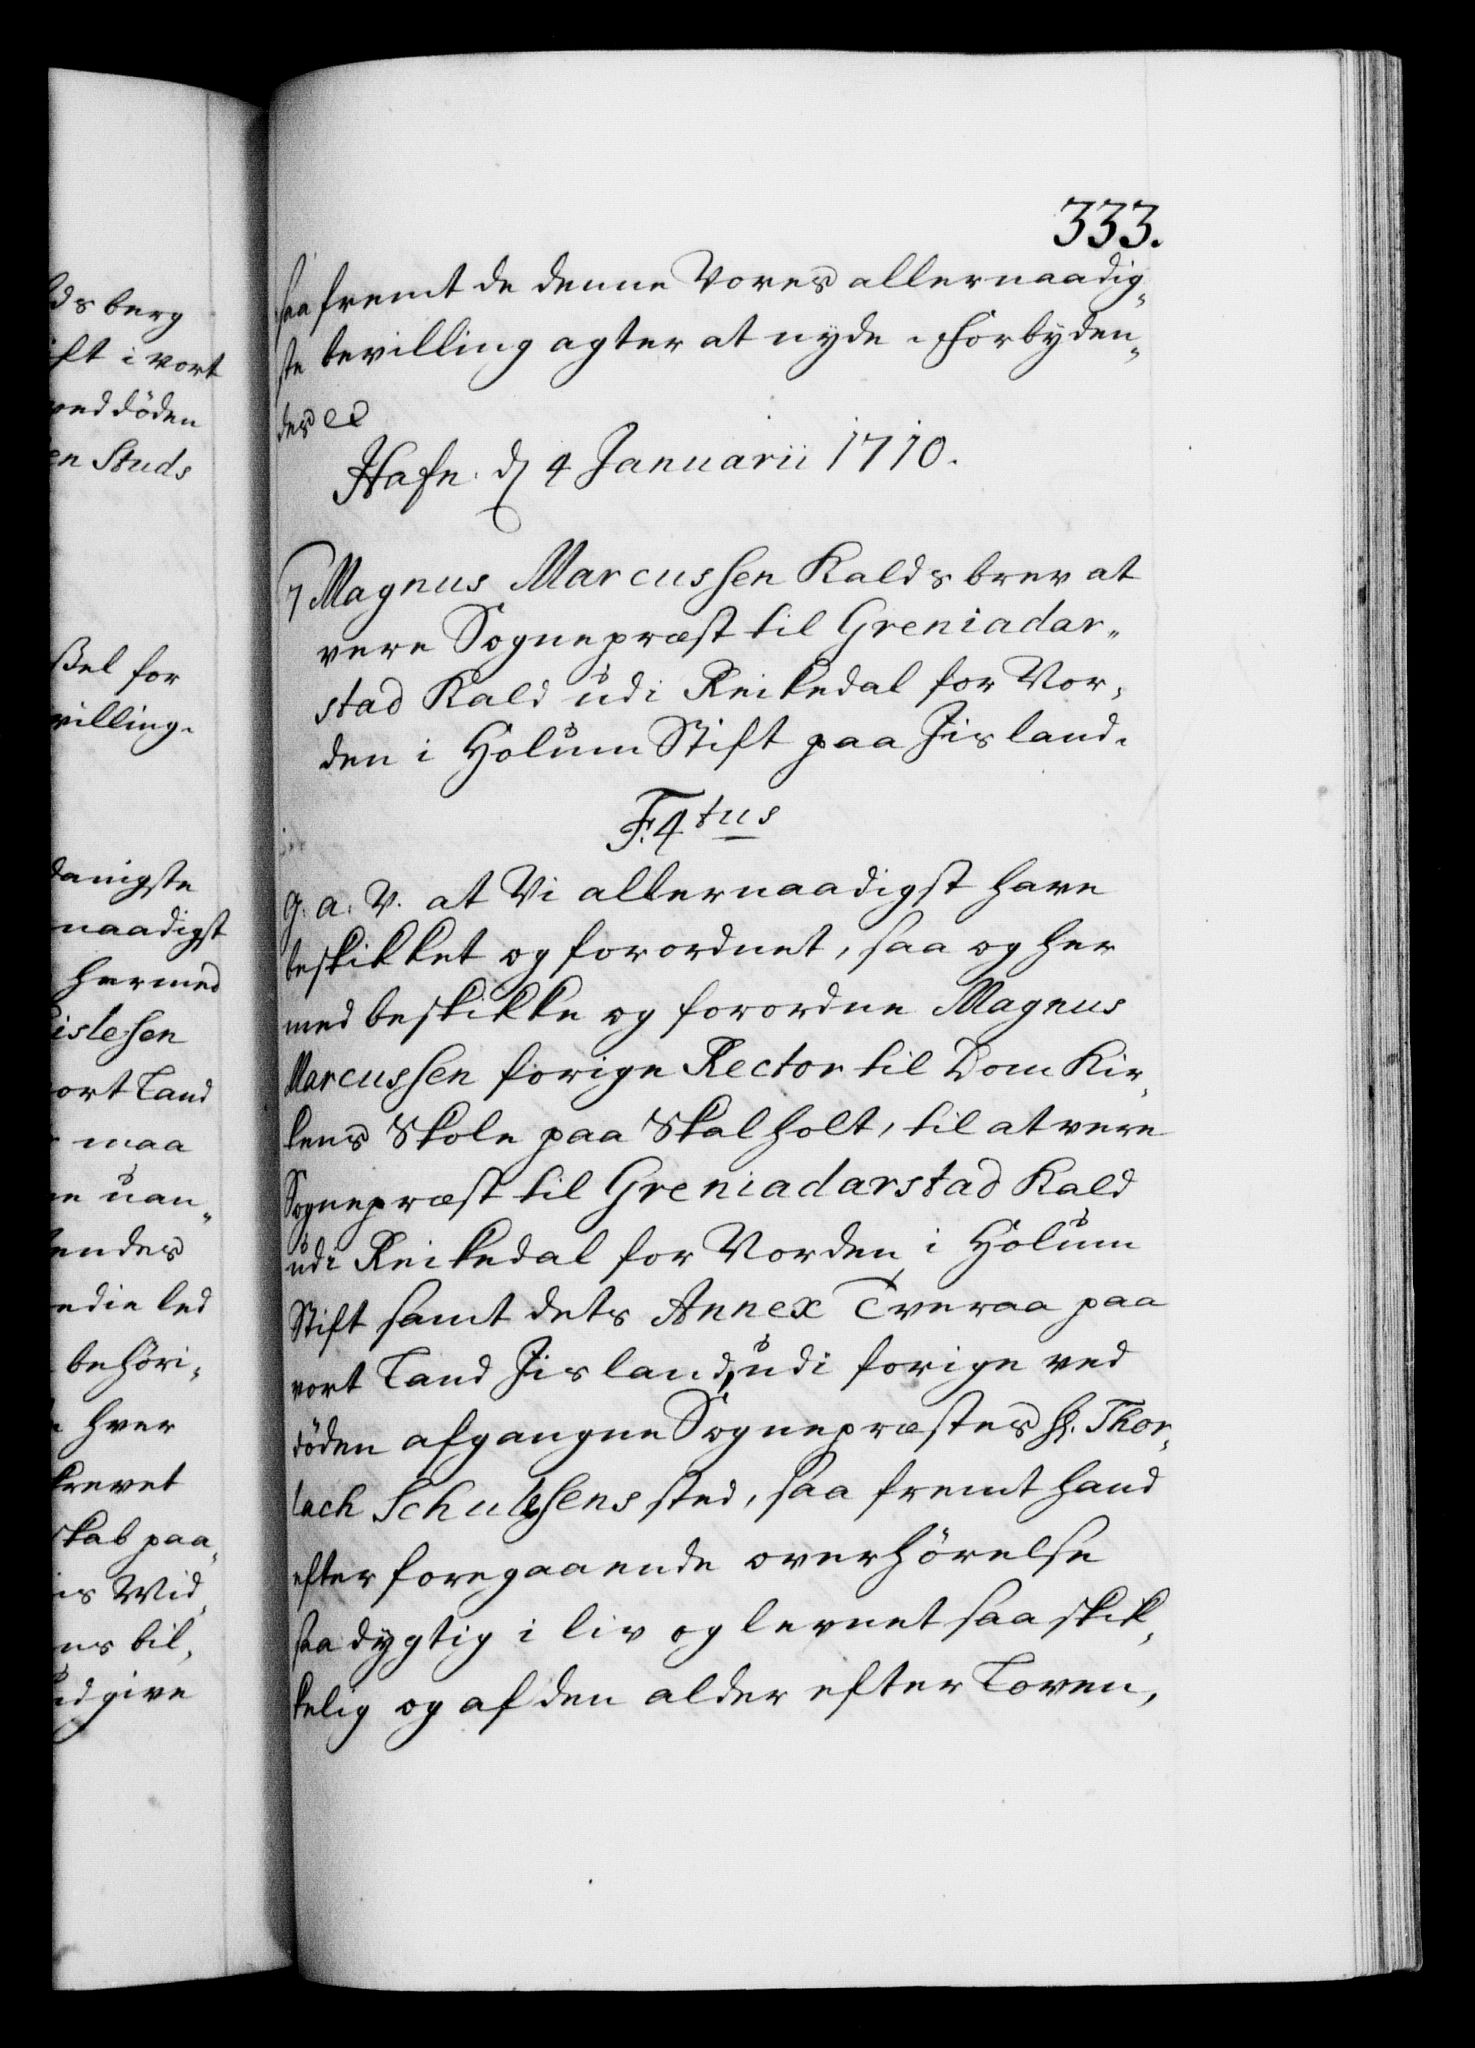 333.
saa fremt de denne Vores allernaadig„
ste bevilling agter at nyde. Forbyden„
des &
Hafn. d 4 Januarii 1710.
7 Magnus Marcussen Kaldsbrev at
vere Sognepræst til Greniadar„
stad Kald udi Reikedal for Vor„
den i Holum Stift paa Jisland.
F. 4tus
G. a. V. at Vi allernaadigst have
beskikket og forordnet, saa og her
med beskikke og forordne Magnus
Marcussen forige Rector til Dom Kir„
kens Skole paa Skalholt, til at vere
Sognepræst til Greniadarstad Kald
udi Reikedal for Vorden i Holum
Stift samt dets Annex Tveraa paa
vort Land Jisland, udi forige ved
döden afgangne Sognepræstes Hr. Thor„
lach Schulesens sted, saa fremt hand
efter foregaaende overhörelse
saa dygtig i liv og levnet saa skik„
kelig og af den alder efter Loven,
dsberg
ift i vort
ved döden
en Studs
ßel for
villing.
danigste
naadigst
hermed
islesen
ort Land
maa
ne uan„
endes
edie led
behöri„
hver
krevet
skab paa„
is Wid„
ns bil„
udgive